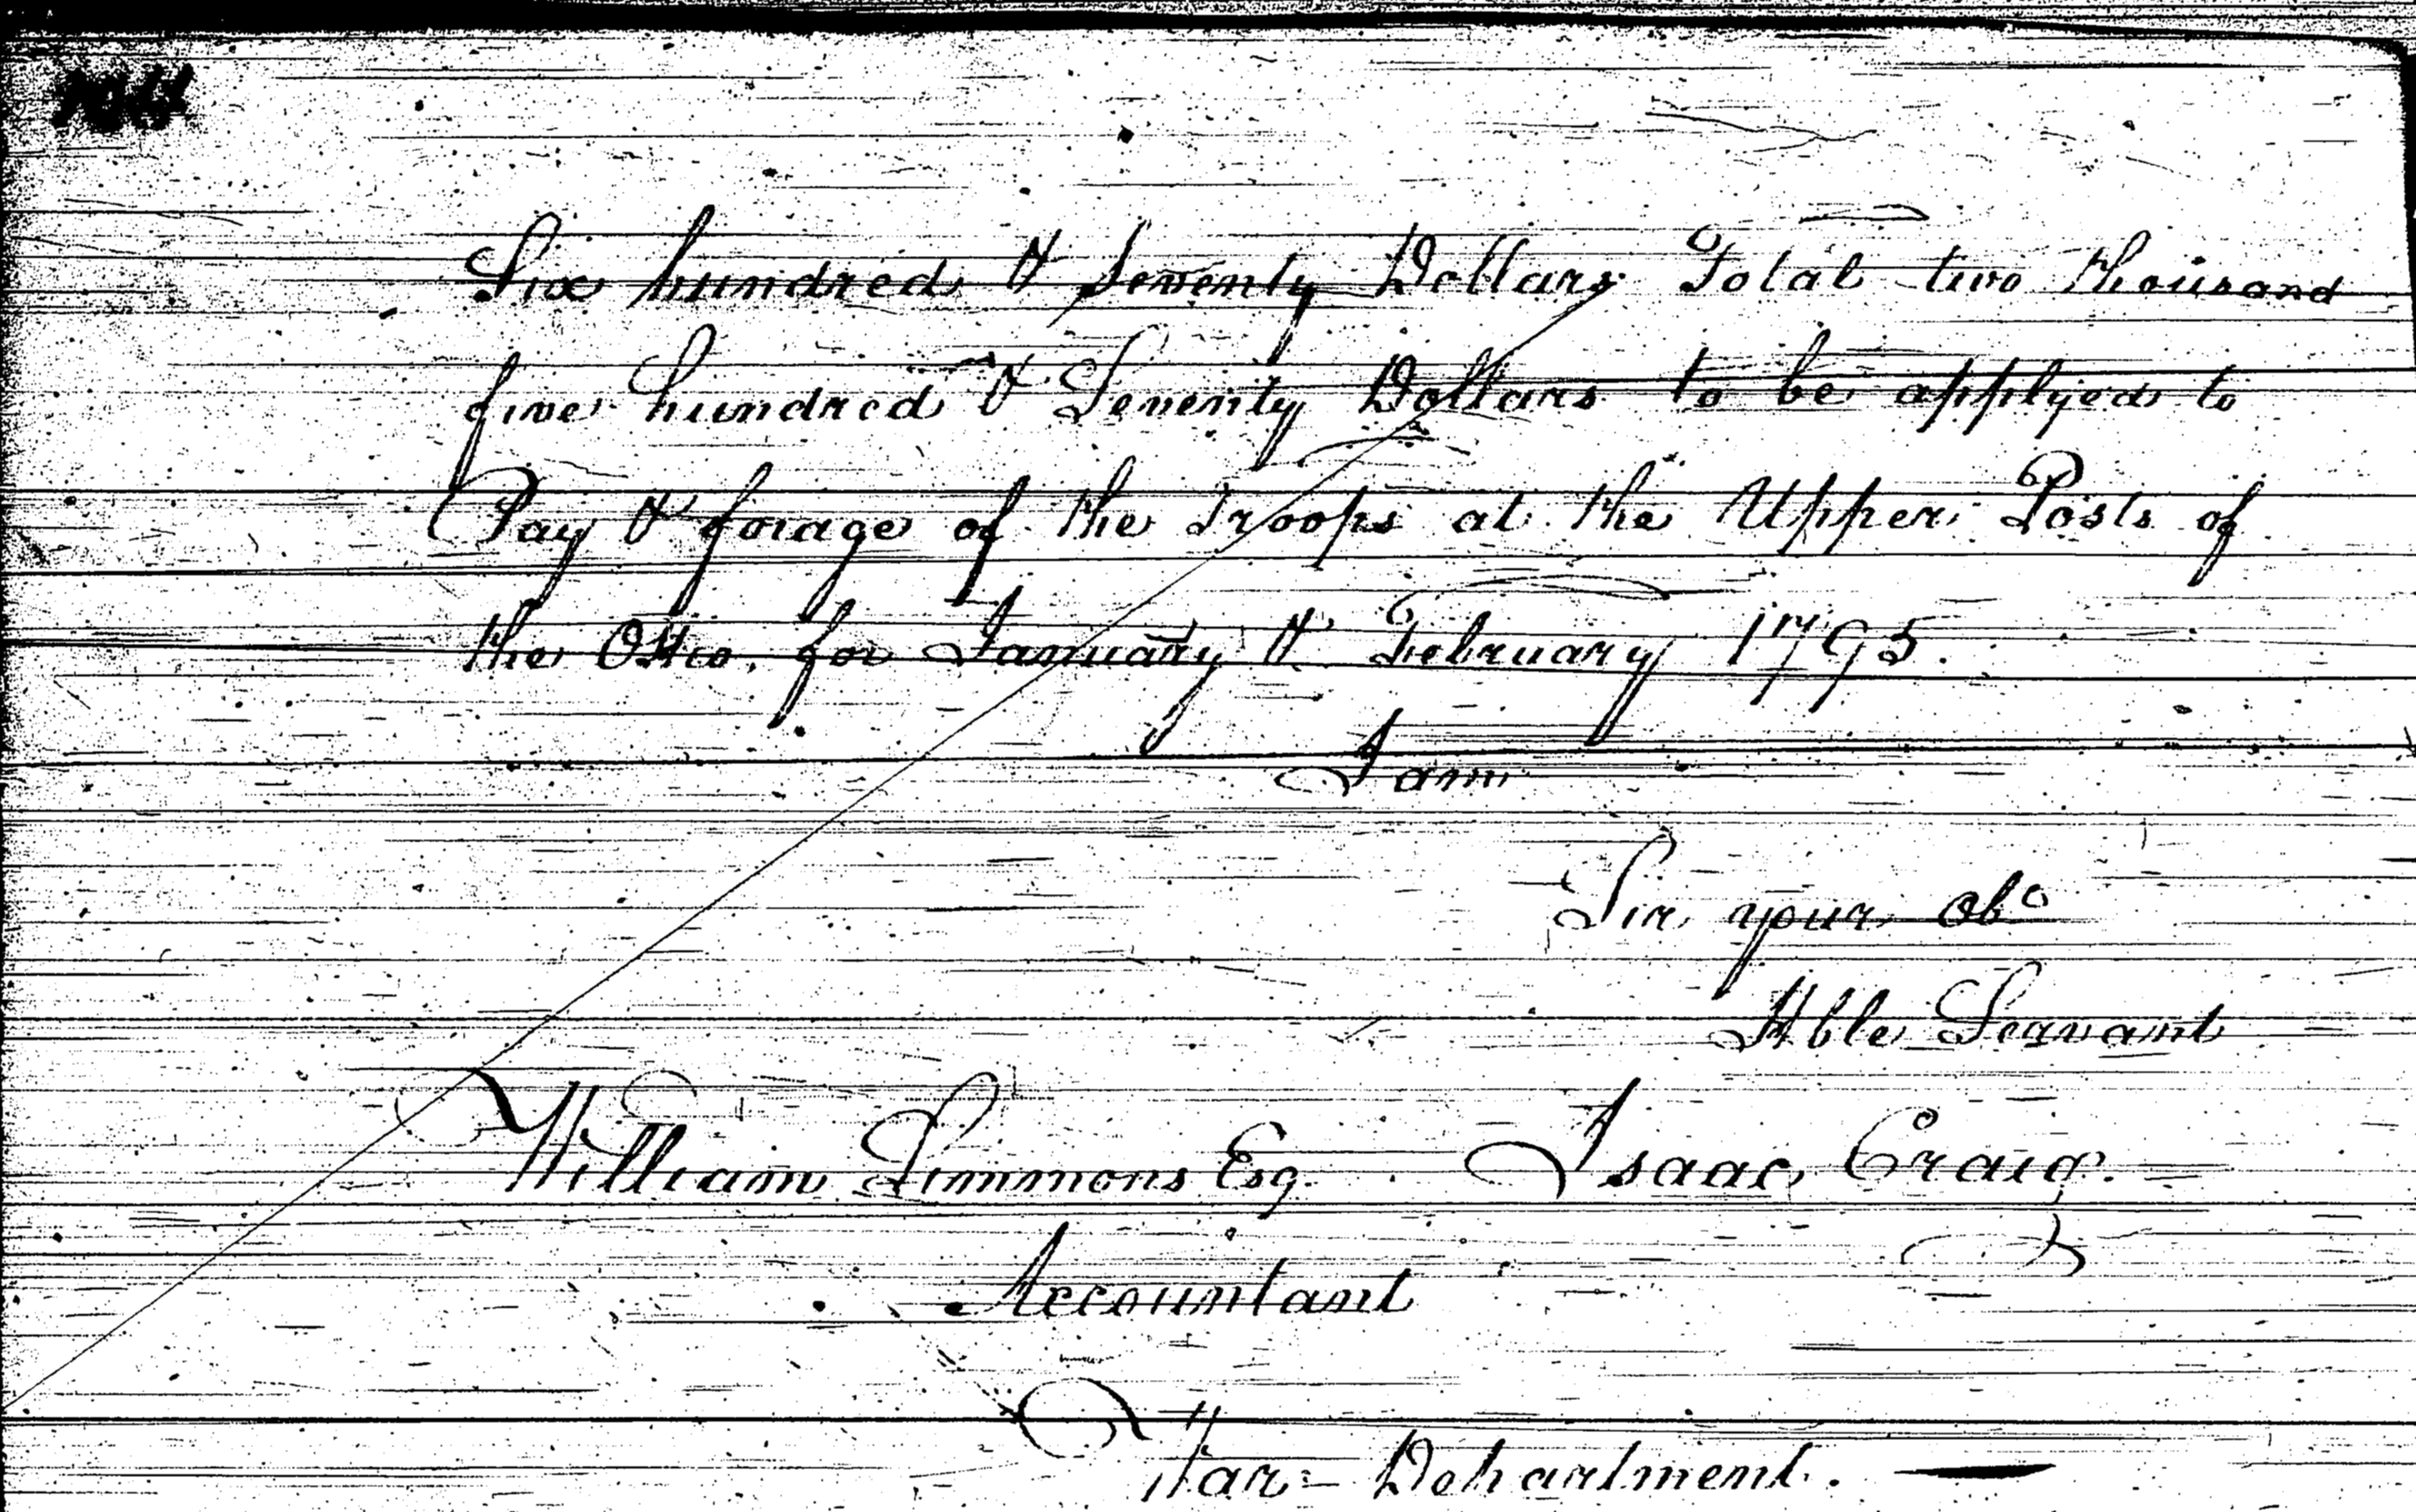 Six hundred & Seventy Dollars Total two thousand
five hundred & Seventy Dollars to be applyed to
Pay & forage of the Troops at the Upper Posts of
the Ohio, for January & February 1795.
I am
Sir your obᵗ
Hble Servant
William Simmons Esq. Isaac Craig.
Accountant
War - Department.